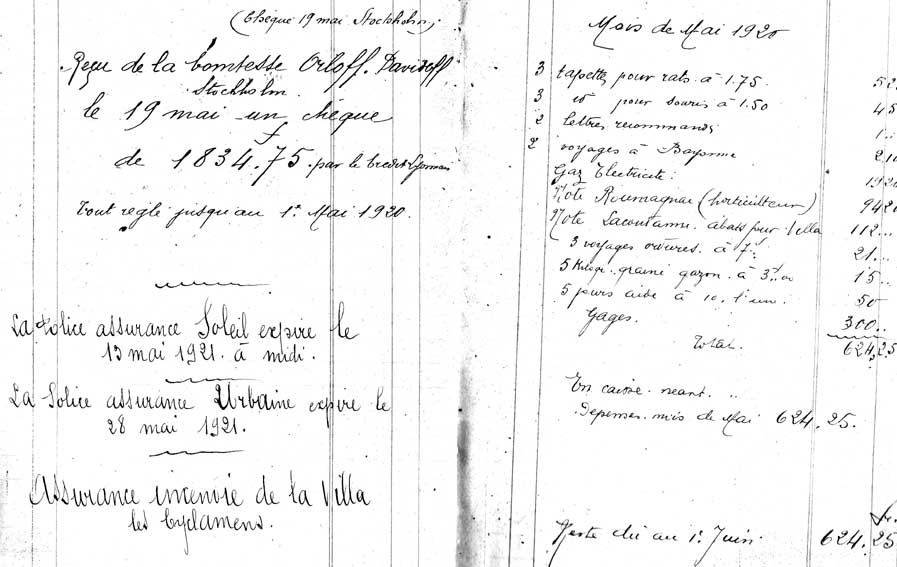 (Chèque 19 mai Stockholm).
Reçu de la Comtesse Orloff. Davidoff
Stockholm.
le 19 mai un chèque
f
de 1834.75. par le Credit Lyonnais
Tout reglé jusqu'au 1er Mai 1920.
La Police assurance Soleil expire le
13 mai 1921. à midi.
La Police assurance Urbaine expire le
28 mai 1921.
Assurance incendie de la Villa
les Cyclamens.
Mois de Mai 1920
3 tapettes pour rats à 1.75. 52
3 id pour souris à 1.50 45
2 lettres recommands 1..
2 voyages à Bayonne 210
Gaz Electricité: 1920
Note Roumagnac (horticulteur) 9420
Note Lacoutanne. abats pour Villa 112...
3 voyages ordures. à 7f. 21...
5 Kilogr. graine gazon. à 3f.00 15..
5 jours aide à 10. l'un. 50
Gages. 300..
Total. 624,25
En caisse. neant. ..
Depenses. mois de Mai 624.25.
fr.
Reste dû au 1er Juin. 624.25